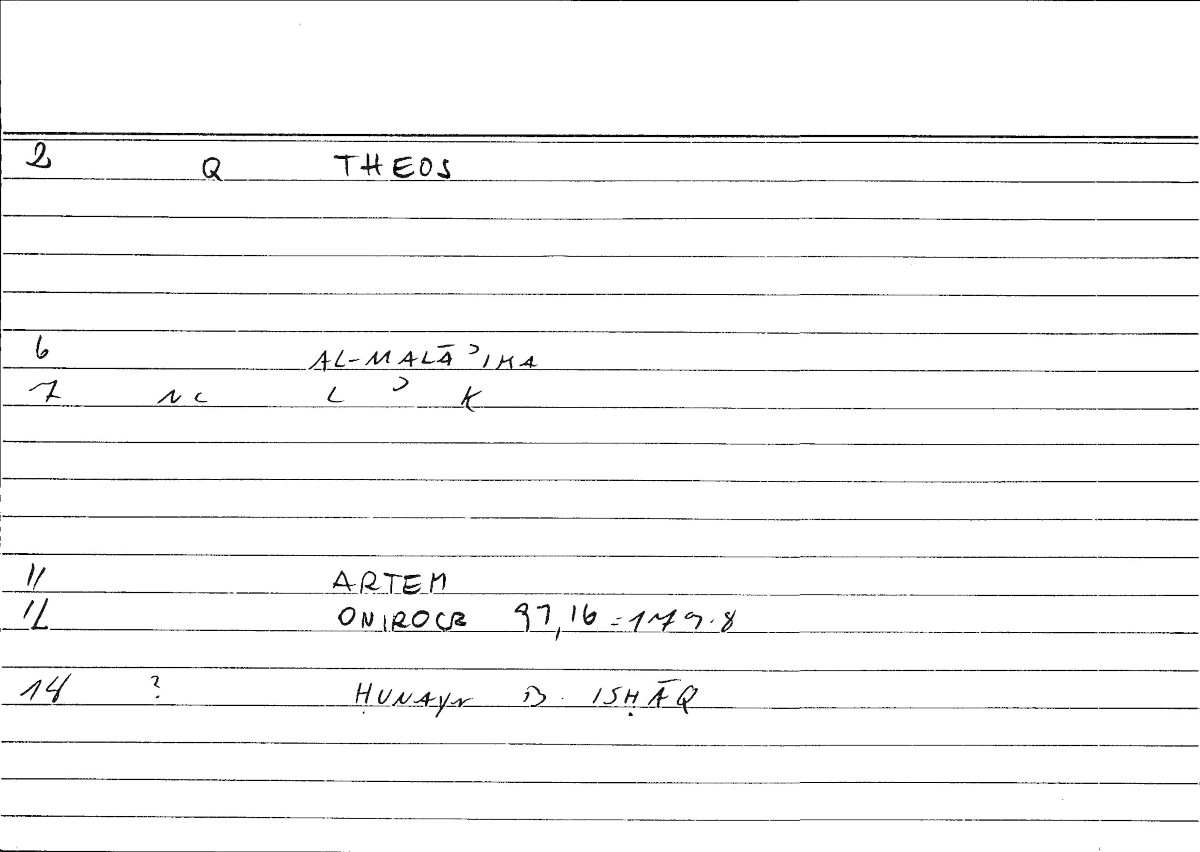 2 Q THEOS
6 AL-MALĀʾIKA
7 NC L ʾ K
11 ARTEM
12 ONIROCR 97,16=179.8
14 ? ḤUNAYN B. ISḤĀQ